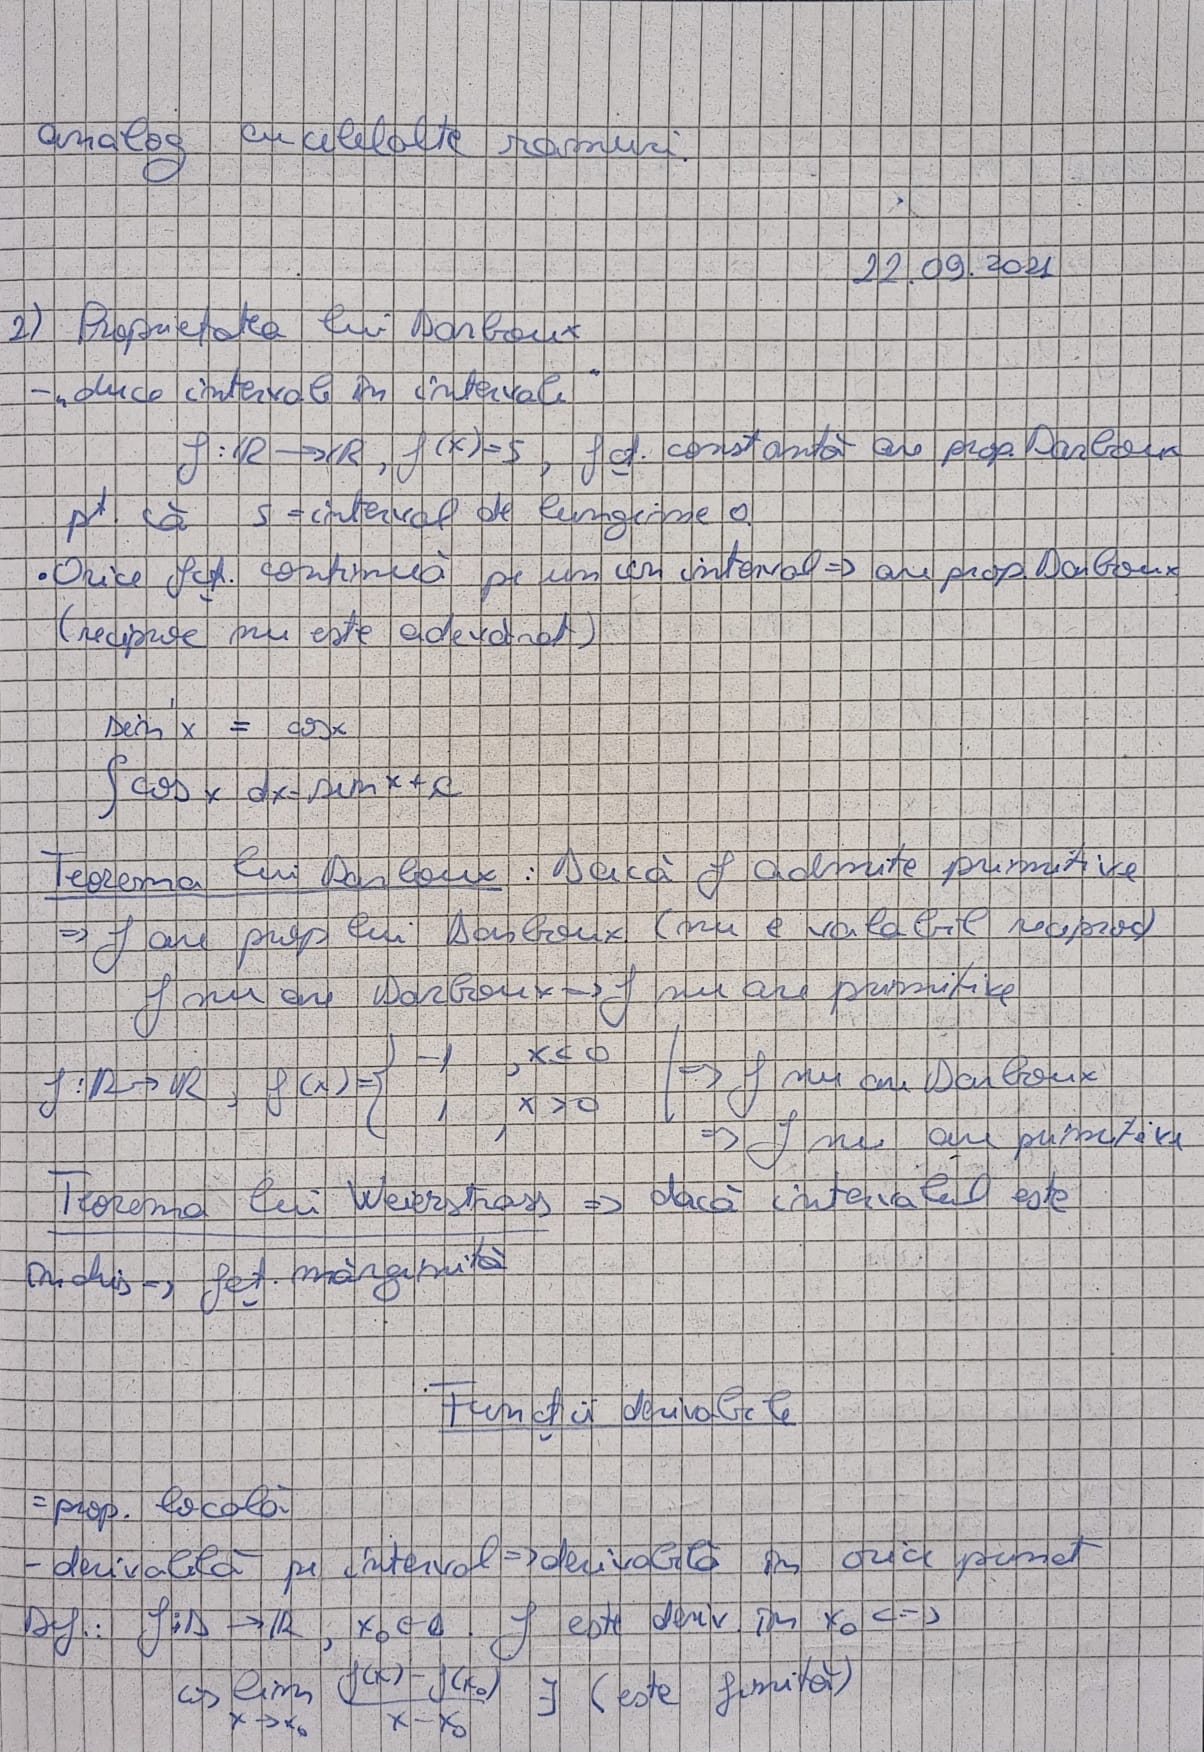 analog cu celelalte ramuri.
22.09.2021
2) Proprietatea lui Darboux
- „duce interval în interval"
f: ℝ → ℝ, f(x)=5, fcț. constantă are prop. Darboux
pt. că 5 = interval de lungime 0.
• Orice fcț. continuă pe un interval => are prop. Darboux
(reciproc nu este adevărat)
sin'x = cosx
∫ cos x dx = sin x + C
Teorema lui Darboux: Dacă f admite primitive
=> f are prop lui Darboux (nu e valabil reciproc)
f nu are Darboux => f nu are primitive
f: ℝ → ℝ, f(x) = { -1 , x < 0 | => f nu are Darboux
1 , x > 0
=> f nu are primitive
Teorema lui Weierstrass => dacă intervalul este
închis => fcț. mărginită
Funcții derivabile
= prop. locală
- derivabilă pe interval => derivabilă în orice punct
Def.: f: D → ℝ, x₀ ∈ D. f este deriv. în x₀ <=>
<=> lim x→x₀ (f(x) - f(x₀))/(x - x₀) ∃ (este finită)